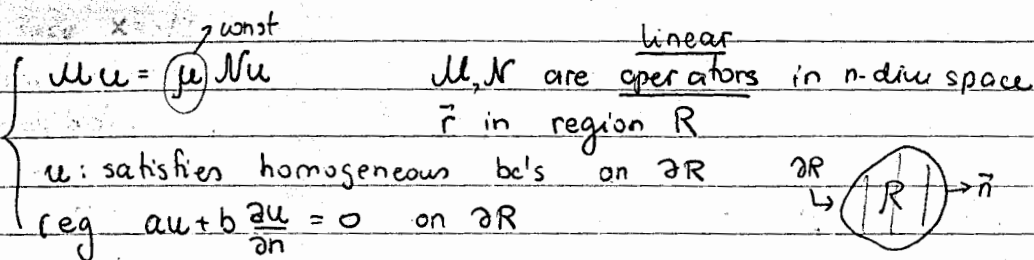 const
linear
ℳu = μ𝒩u ℳ,𝒩 are operators in n-dim space
r⃗ in region R
u: satisfies homogeneous bc's on ∂R ∂R R n⃗
(eg au + b ∂u/∂n = 0 on ∂R